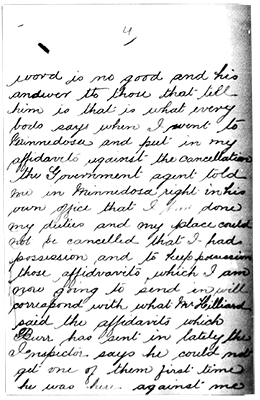 4
word is no good and his
andswer to those that tell
him is that is what every
bods says when I went to
Minnedosa and put in my
affidavits against the cancellation
the Government agent told
me in Minnedosa right in his
own office that I done
my duties and my place could
not be cancelled that I had
possession and to keep possession
those affidvavits which I am
now going to send in will
correspond with what Mr Hilliard
said the affidavits which
Burr has sent in lately the
Inspector says he could not
get one of them first time
he was here against me